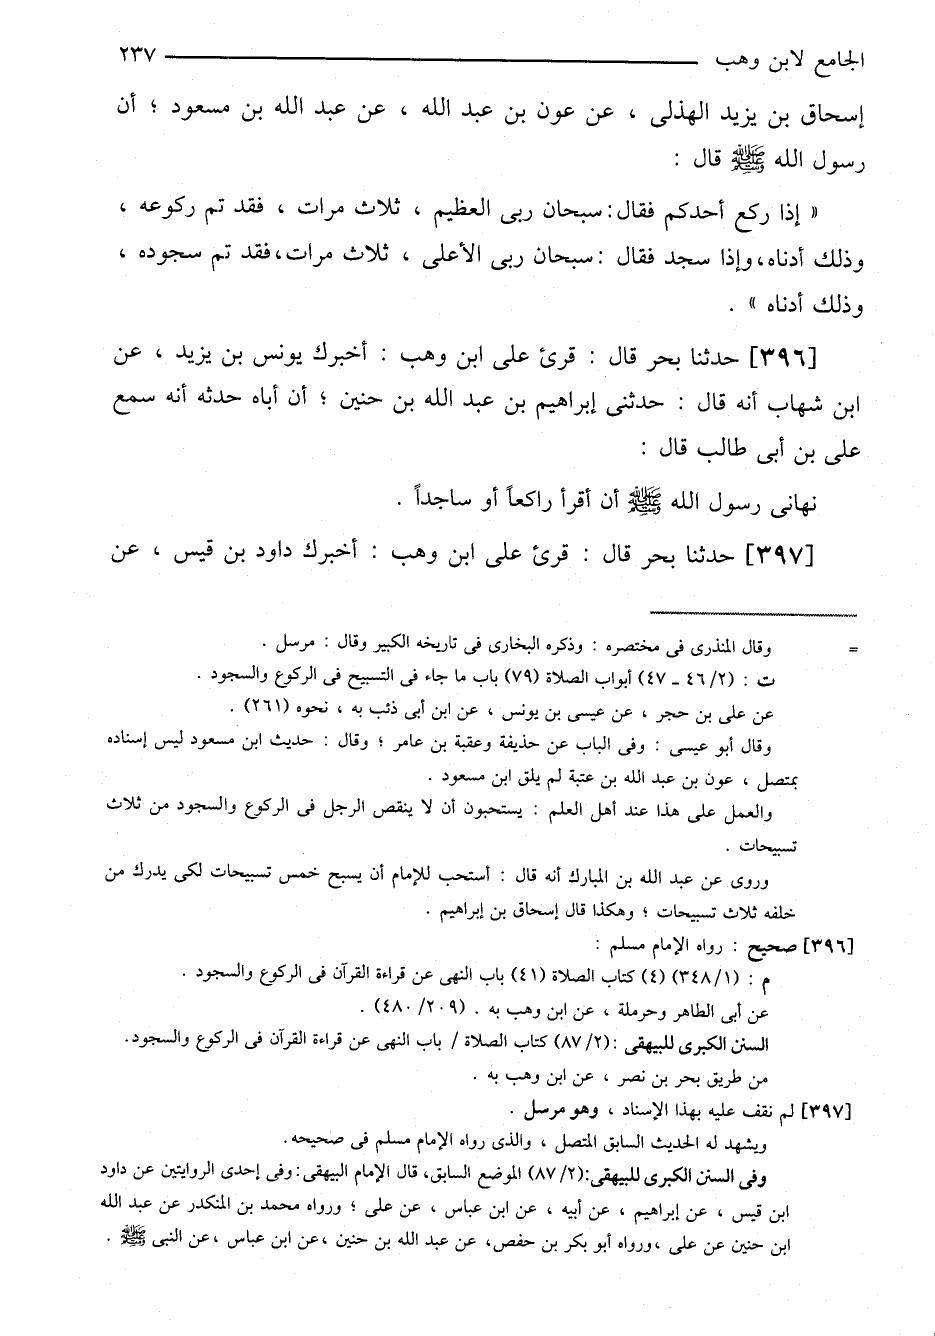 الجامع لابن وهب ٢٣٧
إسحاق بن يزيد الهذلى ، عن عون بن عبد الله ، عن عبد الله بن مسعود ؛ أن
رسول الله ﷺ قال :
« إذا ركع أحدكم فقال: سبحان ربى العظيم ، ثلاث مرات ، فقد تم ركوعه ،
وذلك أدناه، وإذا سجد فقال : سبحان ربى الأعلى ، ثلاث مرات، فقد تم سجوده ،
وذلك أدناه » .
[٣٩٦] حدثنا بحر قال : قرئ على ابن وهب : أخبرك يونس بن يزيد ، عن
ابن شهاب أنه قال : حدثنى إبراهيم بن عبد الله بن حنين ؛ أن أباه حدثه أنه سمع
على بن أبى طالب قال :
نهانى رسول الله ﷺ أن أقرأ راكعاً أو ساجداً .
[٣٩٧] حدثنا بحر قال : قرئ على ابن وهب : أخبرك داود بن قيس ، عن
= وقال المنذرى فى مختصره : وذكره البخارى فى تاريخه الكبير وقال : مرسل .
ت : (٢/ ٤٦ ـ ٤٧) أبواب الصلاة (٧٩) باب ما جاء فى التسبيح فى الركوع والسجود .
عن على بن حجر ، عن عيسى بن يونس ، عن ابن أبى ذئب به ، نحوه (٢٦١) .
وقال أبو عيسى : وفى الباب عن حذيفة وعقبة بن عامر ؛ وقال : حديث ابن مسعود ليس إسناده
بمتصل ، عون بن عبد الله بن عتبة لم يلق ابن مسعود .
والعمل على هذا عند أهل العلم : يستحبون أن لا ينقص الرجل فى الركوع والسجود من ثلاث
تسبيحات .
وروى عن عبد الله بن المبارك أنه قال : أستحب للإمام أن يسبح خمس تسبيحات لكى يدرك من
خلفه ثلاث تسبيحات ؛ وهكذا قال إسحاق بن إبراهيم .
[٣٩٦] صحيح : رواه الإمام مسلم :
م : (١/ ٣٤٨) (٤) كتاب الصلاة (٤١) باب النهى عن قراءة القرآن فى الركوع والسجود .
عن أبى الطاهر وحرملة ، عن ابن وهب به . (٢٠٩/ ٤٨٠) .
السنن الكبرى للبيهقى : (٢/ ٨٧) كتاب الصلاة / باب النهى عن قراءة القرآن فى الركوع والسجود.
من طريق بحر بن نصر ، عن ابن وهب به .
[٣٩٧] لم نقف عليه بهذا الإسناد ، وهو مرسل .
ويشهد له الحديث السابق المتصل ، والذى رواه الإمام مسلم فى صحيحه.
وفى السنن الكبرى للبيهقى: (٢/ ٨٧) الموضع السابق، قال الإمام البيهقى: وفى إحدى الروايتين عن داود
ابن قيس ، عن إبراهيم ، عن أبيه ، عن ابن عباس ، عن على ؛ ورواه محمد بن المنكدر عن عبد الله
ابن حنين عن على ، ورواه أبو بكر بن حفص، عن عبد الله بن حنين ، عن ابن عباس ، عن النبى ﷺ .